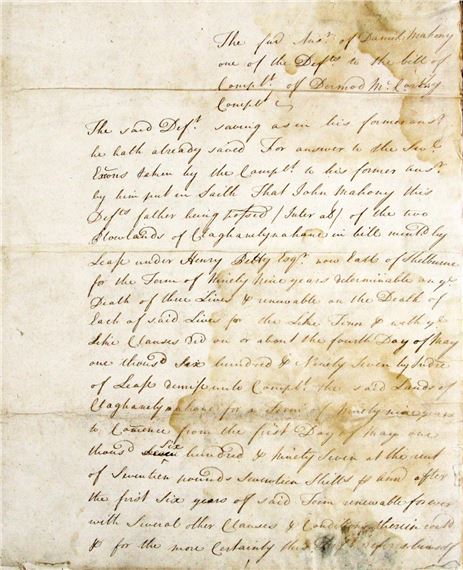 The furd Ansr. of Daniel Mahony
one of the Defts to the bill of
Complt. of Dermod McCarthy
Complt
The said Deft. saving as in his former ansr.
he hath already saved For answer to the
Exons taken by the Complt. to his former Ansr.
by him put in Saith That John Mahony this
Defts father being possed / Inter al / of the two
Plowlands of Claghanelynahane in bill mentd by
Lease under Henry Petty Esqr. now Earle of Shelburne
for the Term of Ninety Nine years determinable on ye
Death of three Lives & renewable on the Death of
Each of said Lives for the Like Term & with ye
Like Clauses Did on or about the fourth Day of May
one thousd Six hundred & Ninety Seven by Indre
of Lease demise unto Complt. the said Lands of
Claghanelynahane for a Term of Ninety nine years
to Comence from the first Day of May one
thousd six hundred & Ninety Seven at the rent
of Seventeen pounds Seventeen Shills p ann after
the first Six years of said Term renewable for ever
with Several other Clauses & Conditions therein contd
& for the more Certainty this Deft refers himself